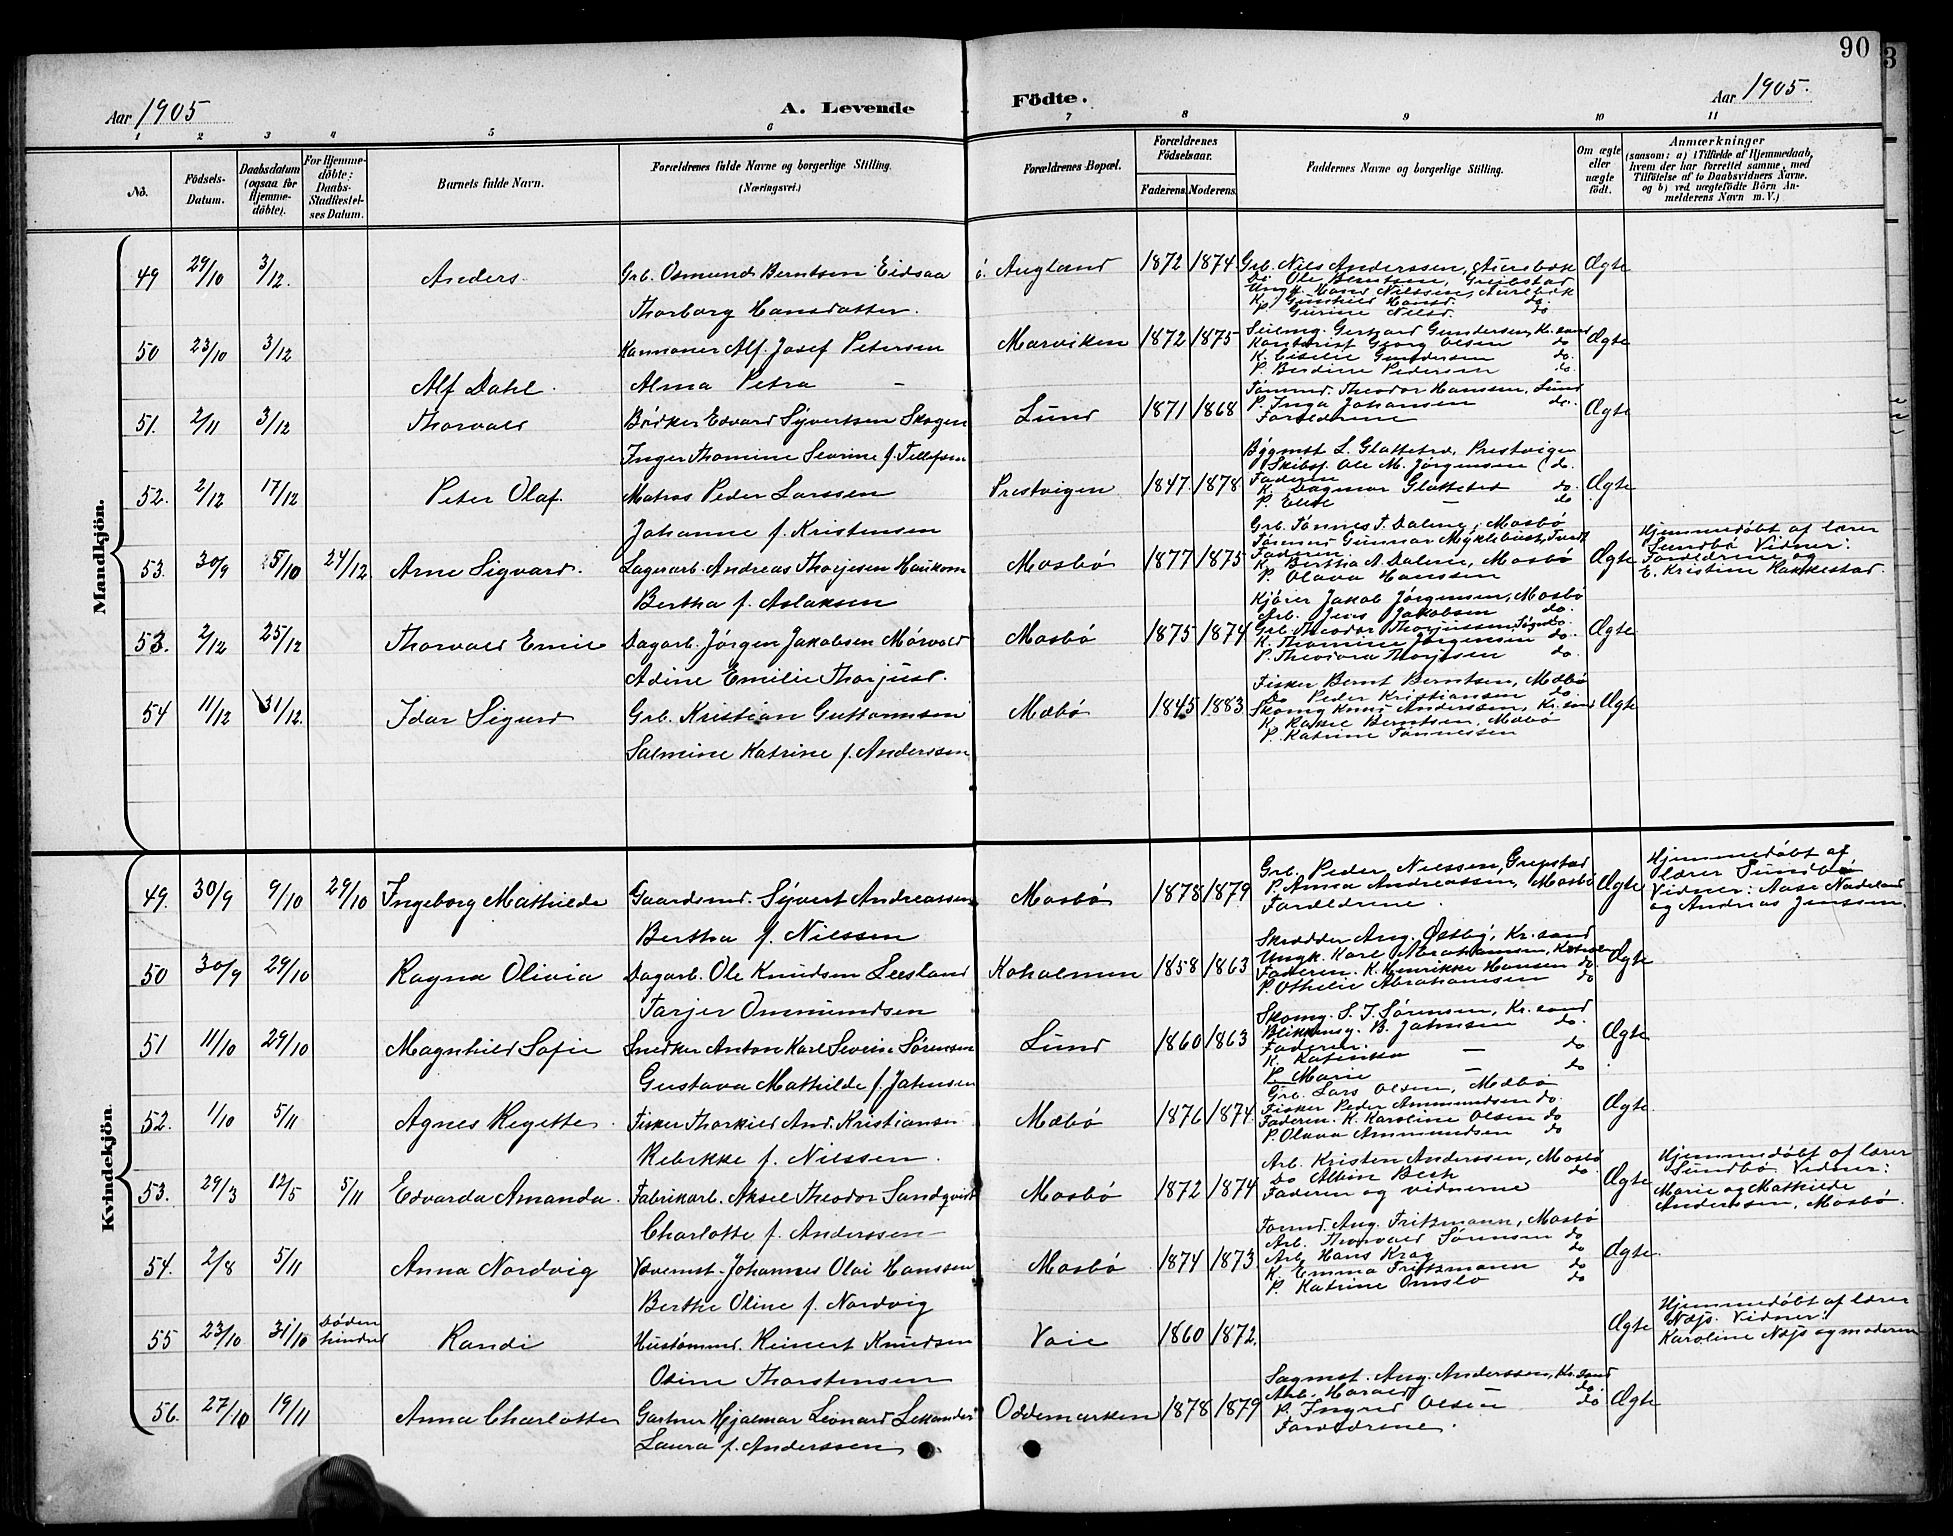 90
3
Aar 1905
A. Levende
Födte.
Aar 1905.
1 2 3 4 5 6 7 8 9 10 11
No.
Födsels-
Datum.
Daabsdatum
(ogsaa for
Hjemme-
döbte).
For Hjemme-
döbte:
Daabs-
Stadfæstel-
ses Datum.
Barnets fulde Navn.
Forældrenes fulde Navne og borgerlige Stilling.
(Næringsvei.)
Forældrenes Bopæl.
Forældrenes
Födselsaar.
Faderens. Moderens.
Faddernes Navne og borgerlige Stilling.
Om ægte
eller
uægte
födt.
Anmærkninger
(saasom: a) i Tilfælde af Hjemmedaab,
hvem der har forrettet samme, med
Tilföielse af to Daabsvidners Navne.
og b) ved uægtefödte Börn An-
melderens Navn m. V.)
Mandkjön.
49 29/10 3/12. Anders. Grb. Osmund Berntsen Eidsaa
Thorborg Hansdatter.
Augland 1872 1874
Grb. Nils Anderssen, Aurebæk
Do. Ole Berntsen, Greibstad
Ungk. Hans Nilssen, Aurebæk
K. Gunhild Hansd. do.
P. Gurine Nilsd. do
Ægte
50 23/10 3/12 Alf Dahl. Kannoner Alf. Josef Petersen
Alma Petra —
Marviken 1872 1875
Seilmg. Gerhard Gundersen, Kr. sand
Kontorist Georg Olsen do
K. Cisilie Gundersen do.
P. Berdine Pedersen do.
Ægte
51. 2/11 3/12 Thorvald Bödker Edvard Syvertsen Skogen
Inger Thomine Severine f. Tellefsen
Lund 1871 1868
Tömmd. Theodor Hanssen, Lund
P. Inga Johansen do.
Forældrene
Ægte
52. 2/12 17/12 Peter Olaf. Matros Peder Larssen
Johanne f. Kristensen
Prestvigen 1847 1878
Bygmst. L. Glattetre, Prestvigen
Skibsf. Ole M. Jörgensen do.
Faderen
K. Dagmar Glattetre do.
P. Elise — do
Ægte
53. 30/9 15/10 24/12 Arne Sigvard. Lagerarb. Andreas Thorjesen Haukom
Bertha f. Aslaksen
Mosbö 1877 1875
Grb. Tönnes T. Dalene, Mosbö
Tömmd Gunnar Myklebust,
Faderen.
K. Bertha A. Dalene, Mosbö
P. Olava Hanssen
Ægte
Hjemmedöbt af lærer
Sundbö Vidner:
Forældrene og
E. Kristine Rakkestad.
53. 2/12 25/12 Thorvald Emil Dagarb. Jörgen Jakobsen Mörvold
Adine Emilie Thorjusd.
Mosbö 1875 1874
Kjörer Jakob Jörgensen, Mosbö
Grb. Jens Jakobsen do.
Grb. Theodor Thorjussen, do.
K. Thomine Jörgensen do.
P. Theodora Thorjesen do.
Ægte
54 11/12 31/12. Idar Sigurd Grb. Kristian Guttormsen
Salmine Katrine f. Anderssen
Mæbö 1845 1883
Fisker Bernt Berntsen, Mæbö
Do Peder Kristiansen do.
Skomg Knut Anderssen, Kr. sand
K. Rakel Berntsen, Mæbö
P. Katrine Tönnessen
Ægte
Kvindekjön.
49. 30/9 9/10 29/10 Ingeborg Mathilde Gaardsmd. Syvert Andreassen
Bertha f. Nilssen
Mosbö 1878 1879
Grb. Peder Nilssen, Grepstad
P. Anna Andreassen, Mosbö
Forældrene.
Ægte
Hjemmedöbt af
lærer Sundbö
Vidner: Aase Nodeland
og Andreas Jenssen.
50 30/9 29/10 Ragna Olivia Dagarb. Ole Knudsen Leesland
Tarjer Ommundsen
Koholmen 1858 1863
Skrædder Aug. Östby, Kr. sand
Ungk. Karl Abrahamsen, Koholm
Faderen. K. Henrikke Hansen do
P. Othelie Abrahamsen do
Ægte
51 11/10 29/10 Magnhild Sofie Snedker Anton Karl Severin Sörensen
Gustava Mathilde f. Jahnsen
Lund 1860 1863
Skomg. S. T. Sörensen, Kr. sand
Blikkensg. B. Jahnsen do.
Faderen. do
K. Katinka — do
P. Marie —
Ægte
52. 1/10 5/11 Agnes Regette. Fisker Thorkild And. Kristiansen
Rebekke f. Nilssen.
Mæbö 1876 1874.
Grb. Lars Olsen, Mæbö
Fisker Peder Ammundsen do.
Faderen. K. Karoline Olsen do
P. Olava Ammundsen do
Ægte.
53. 29/3 12/5 5/11 Edvarda Amanda. Fabrikarb. Aksel Theodor Sandqvist
Charlotte f. Anderssen
Mosbö 1872 1874
Arb. Kristen Anderssen, Mosbö
Do Albin Beck do.
Faderen og vidnerne
Ægte
Hjemmedöbt af lærer
Sundbö. Vidner:
Marie og Mathilde
Anderssen, Mosbö.
54. 2/8 5/11 Anna Nordvig Vævemst. Johannes Olai Hanssen
Berthe Oline f. Nordvig
Mosbö 1874 1873
Formd. Aug. Fritzmann, Mosbö
Arb. Thorvald Sörensen do
Arb. Hans Krag do
K. Emma Fritzmann do
P. Katrine Omslo do
Ægte.
55 23/10 31/10 Döden
hindret Randi Hustömmd. Reinert Knudsen
Osine Thorstensen
Voie 1860 1872.
Ægte
Hjemmedöbt af lærer
Næjs. Vidner:
Karoline Næjs og moderen
56. 27/10 19/11 Anna Charlotte Gartner Hjalmar Leonard Lekander
Laura f. Anderssen
Oddemarken 1878 1879
Sagmst. Aug. Anderssen, Kr. sand
Arb. Harald do.
P. Ingrid Olsen do
Forældrene.
Ægte